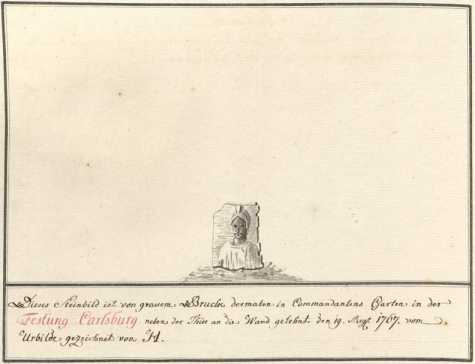 Dieses Steinbild ist von grauem Bruche dermalen in Commandantens Garten in der
Festung Carlsburg neben der Thür an die Wand gelehnt. den 19. Aug͞t 1767. vom
Urbilde gezeichnet von H.